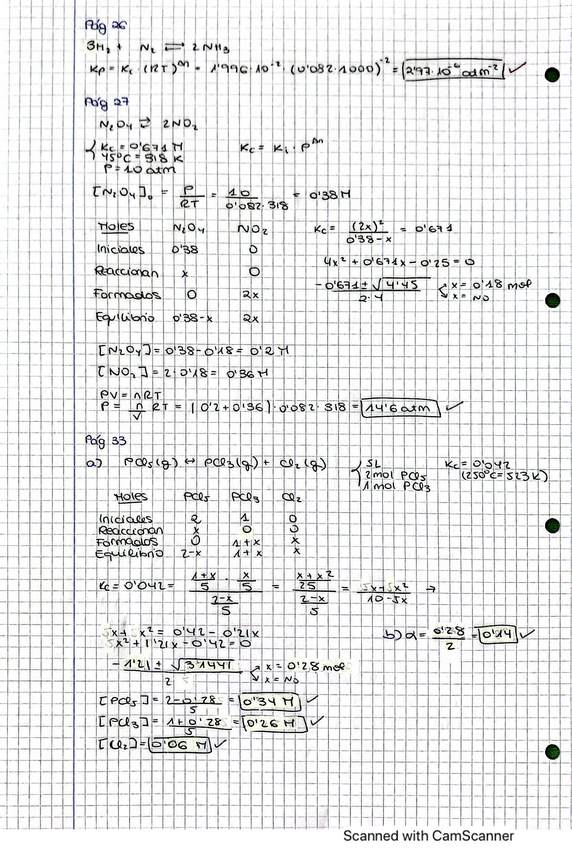 Pág 26
3H₂ + N₂ ⇌ 2NH₃
Kp = Kc · (RT)^Δn = 1'996 · 10⁻² · (0'082 · 1000)⁻² = 2'97 · 10⁻⁶ atm⁻² ✓
Pág 27
N₂O₄ ⇌ 2NO₂
Kc = 0'671 M
45ºC = 318 K
P = 10 atm
Kc = Ki · P^Δn
[N₂O₄]₀ = P/RT = 10/0'082·318 = 0'38 M
Moles N₂O₄ NO₂
Iniciales 0'38 0
Reaccionan x 0
Formados 0 2x
Equilibrio 0'38-x 2x
Kc = (2x)²/0'38-x = 0'671
4x² + 0'671x - 0'25 = 0
-0'671 ± √4'45 / 2·4 x = 0'18 mol
x = NO
[N₂O₄] = 0'38 - 0'18 = 0'2 M
[NO₂] = 2 · 0'18 = 0'36 M
PV = nRT
P = n/V RT = (0'2 + 0'36) · 0'082 · 318 = 14'6 atm ✓
Pág 33
a) PCl₅(g) ↔ PCl₃(g) + Cl₂(g)
5L
2mol PCl₅
1 mol PCl₃
Kc = 0'042
(250ºC = 523K)
Moles PCl₅ PCl₃ Cl₂
Iniciales 2 1 0
Reaccionan x 0 0
Formados 0 1+x x
Equilibrio 2-x 1+x x
Kc = 0'042 = (1+x/5 · x/5)/(2-x/5) = (x+x²/25)/(2-x/5) = 5x+5x²/10-5x →
5x+5x² = 0'42 - 0'21x
5x² + 1'21x - 0'42 = 0
-1'21 ± √3'1441 / 2 x = 0'28 mol
x = NO
b) α = 0'28/2 = 0'14 ✓
[PCl₅] = 2-0'28/5 = 0'34 M ✓
[PCl₃] = 1+0'28/5 = 0'26 M ✓
[Cl₂] = 0'06 M ✓
Scanned with CamScanner